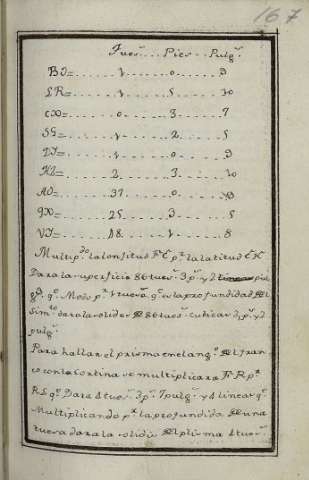 167
Tues.^s Pies Pulg.^s
BI= 1 0 9
LR= 1 5 10
CX= 0 3 7
SG= 1 2 5
ZI= 1 0 9
KL= 2 3 10
AO= 37
QX= 25 3 5
VI= 18 1 8
Multip.^do la lonjitud FC p.^r la latitud CK
Dara la superficie 86 tues.^s 3 p.^s y 2
q.^e p.^r 1 tuesa q.^e es la profundidad del
dara la solidez de 86 tues.^s cubicas 3 p.^s y 2
pulg.^s
Para hallar el prisma en el ang.^o del flan
co con la cortina se multiplicara FR p.^r
RL q.^e Dara 4 tues.^s 3 p.^s 7 pulg.^s y 4 linea q.^e
Multiplicando p.^r la profundida de una
tuesa dara la solidez del prisma 4 tues.^s